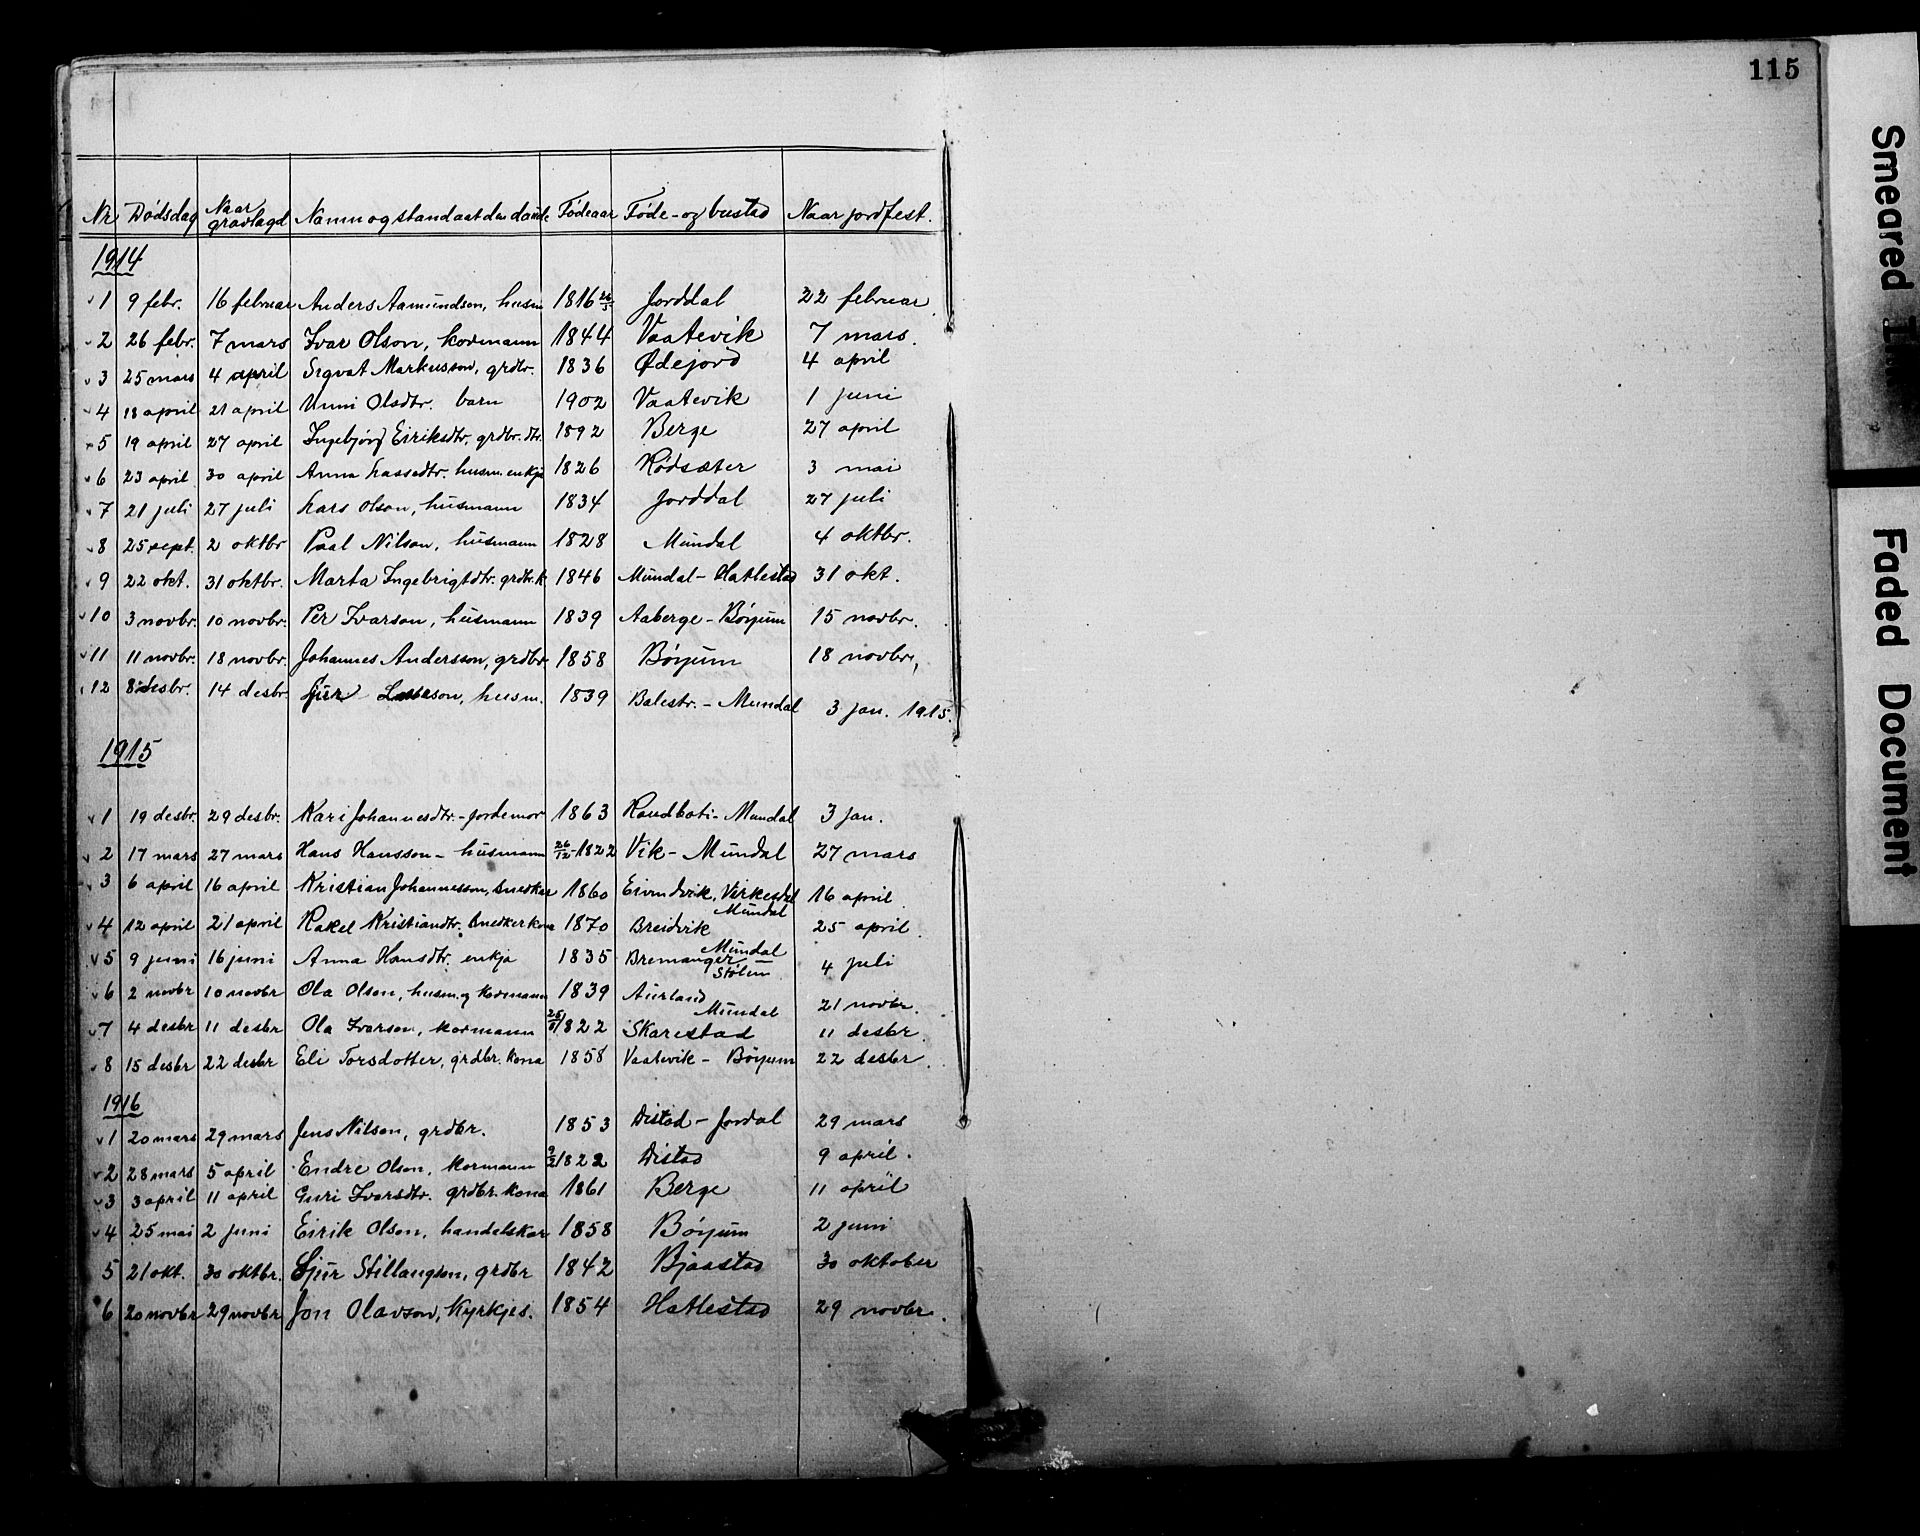 115
Nr Dødsdag Naar gravlagd Namn og stand aat den daude Fødeaar Føde- og bustad Naar jordfest.
1914
1 9 febr. 16 februar Anders Aamundson, husm 1816 26/5 Jorddal 22 februar
2 26 febr. 7 mars Ivar Olson, kormann 1844 Vaatevik 7 mars.
3 25 mars 4 april Sigvat Markusson, grdbr. 1836 Ødejord 4 april
4 18 april 21 april Unni Olsdtr. barn 1902 Vaatevik 1 juni
5 19 april 27 april Ingebjørg Eiriksdtr. grdbr. dtr. 1892 Berge 27 april
6 23 april 30 april Anna Lassedtr. husm. enkja 1826 Rødsæter 3 mai
7 21 juli 27 juli Lars Olson, husmann 1834 Jorddal 27 juli
8 25 sept. 2 oktbr Paal Nilson, husmann 1828 Mundal 4 oktbr.
9 22 okt. 31 oktbr. Marta Ingebrigtdtr. grdbr. k 1846 Mundal - Hatlestad 31 okt.
10 3 novbr. 10 novbr. Per Ivarson, husmann 1839 Aaberge - Bøyum 15 novbr.
11 11 novbr. 18 novbr. Johannes Andersson, grdbr 1858 Bøyum 18 novbr,
12 8 desbr. 14 desbr. Sjur Lasseson, husm. 1839 Balestr. - Mundal 3 jan. 1915.
1915
1 19 desbr. 29 desbr. Kari Johannesdtr. - jordemor 1863 Raudboti - Mundal 3 jan.
2 17 mars 27 mars Hans Hansson - husmann 26/12 1822 Vik - Mundal 27 mars
3 6 april 16 april Kristian Johannesson, snedkar 1860 Eivindvik, Virkesdal Mundal 16 april
4 12 april 21 april Rakel Kristiandtr. Snedkerkona 1870 Breidvik Mundal 25 april
5 9 juni 16 juni Anna Hansdtr. enkja 1835 Bremanger Stølen 4 juli
6 2 novbr 10 novbr Ola Olson, husm. og kormann 1839 Aurland Mundal 21 novbr.
7 4 desbr 11 desbr Ola Ivarson, kormann 1822 Skarestad 11 desbr
8 15 desbr 22 desbr Eli Torsdotter, grdbr. kona 1858 Vaatevik - Bøyum 22 desbr.
1916
1 20 mars 29 mars Jens Nilson, grdbr. 1853 Distad - Jordal 29 mars
2 28 mars 5 april Endre Olson, kormann 9/2 1822 Distad 9 april.
3 3 april 11 april Guri Ivarsdtr. grdbr. kona 1861 Berge 11 april
4 25 mai 2 juni Eirik Olson, handelskar 1858 Bøyum 2 juni
5 21 okt. 30 oktbr. Sjur Stillangson, grdbr 1842 Bjaastad 30 oktober
6 20 novbr 29 novbr Jon Olavson, Kyrkjes. 1854 Hatlestad 29 novbr.
Smeared
Faded Document